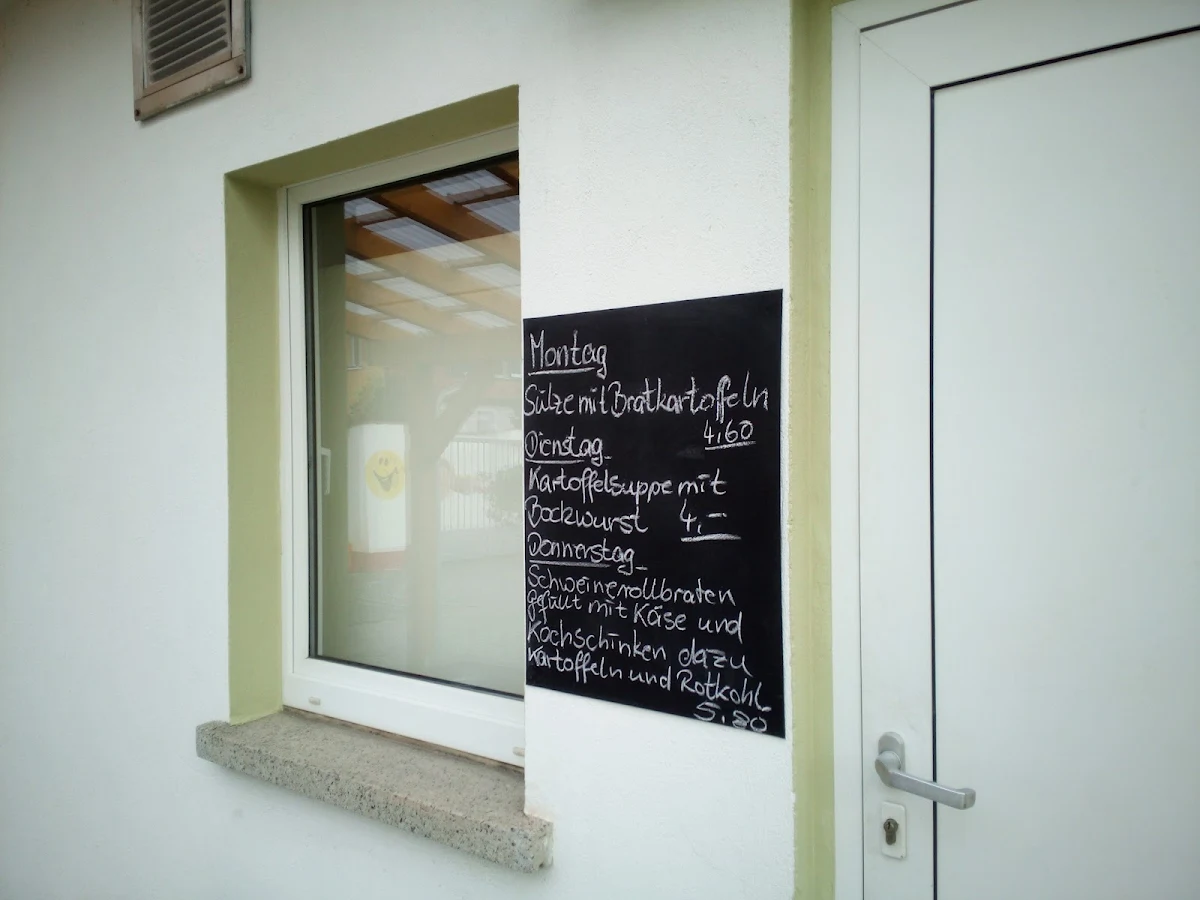 Montag
Sülze mit Bratkartoffeln
4,60
Dienstag
Kartoffelsuppe mit
Bockwurst 4,-
Donnerstag
Schweinerollbraten
gefüllt mit Käse und
Kochschinken dazu
Kartoffeln und Rotkohl
5.80